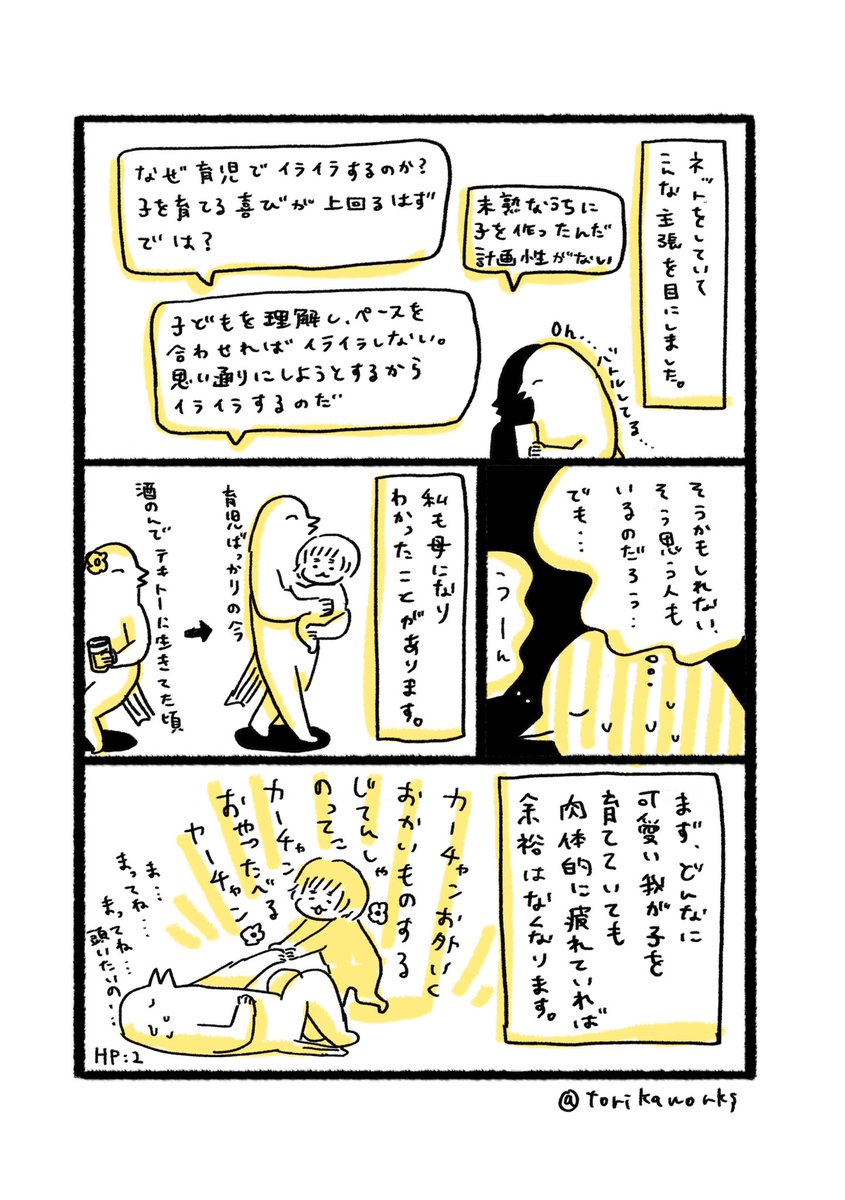 ネットをしていて
こんな主張を目にしました。
未熟なうちに
子を作ったんだ
計画性がない
なぜ育児でイライラするのか?
子を育てる喜びが上回るはず
では?
子どもを理解し、ペースを
合わせればイライラしない。
思い通りにしようとするから
イライラするのだ
Oh....
バトルしてる...
そうかもしれない、
そう思う人も
いるのだろう‥
でも…
うーん
私も母になり
わかったことがあります。
育児ばっかりの今
酒のんでテキトーに生きてた頃
まず、どんなに
可愛い我が子を
育てていても
肉体的に疲れていれば
余裕はなくなります。
カーチャンお外いく
おかいものする
じてんしゃ
のってこ
カーチャン
おやつたべる
カーチャン
ま…
まってね…
まってね…
頭いたいの…
HP:2
@torikaworks